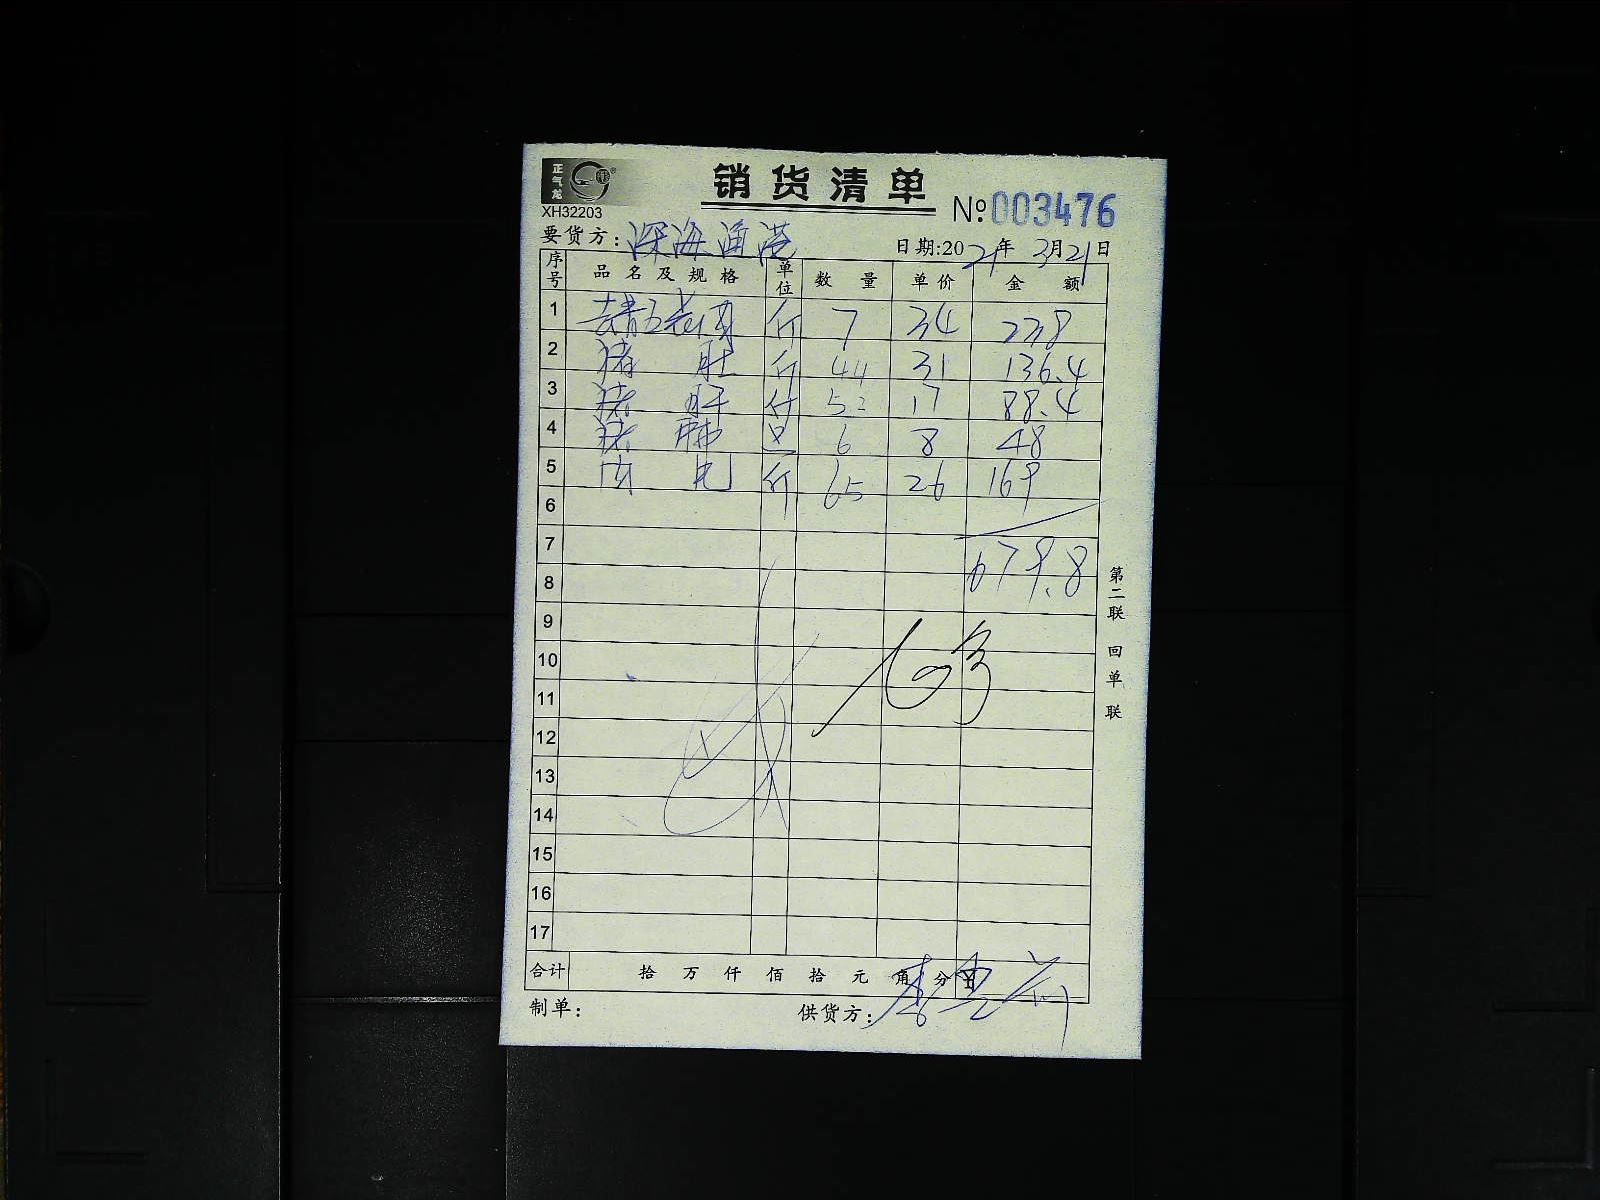 正气龙
销货清单
XH32203
№:003476
要货方:深海渔港
日期:2021年3月21日
序号 品名及规格 单位 数量 单价 金额
1 去精五花肉 斤 7 34 238
2 猪肚 斤 44 31 136.4
3 猪肝 斤 52 17 88.4
4 猪脚 只 6 8 48
5 肉 斤 65 26 169
6
7 679.8
8
9
10
11
12
13
14
15
16
17
合计 拾万仟佰拾元角分 ¥
制单:
供货方:
第二联 回单联